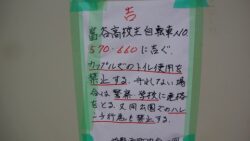 告
富谷高校生自転車NO.
570-660に告ぐ.
カップルでのトイレ使用を
禁止する. 守れない場
合は警察、学校に連絡
をとる. 又同公園でのハレ
ンチ行為も禁止する。